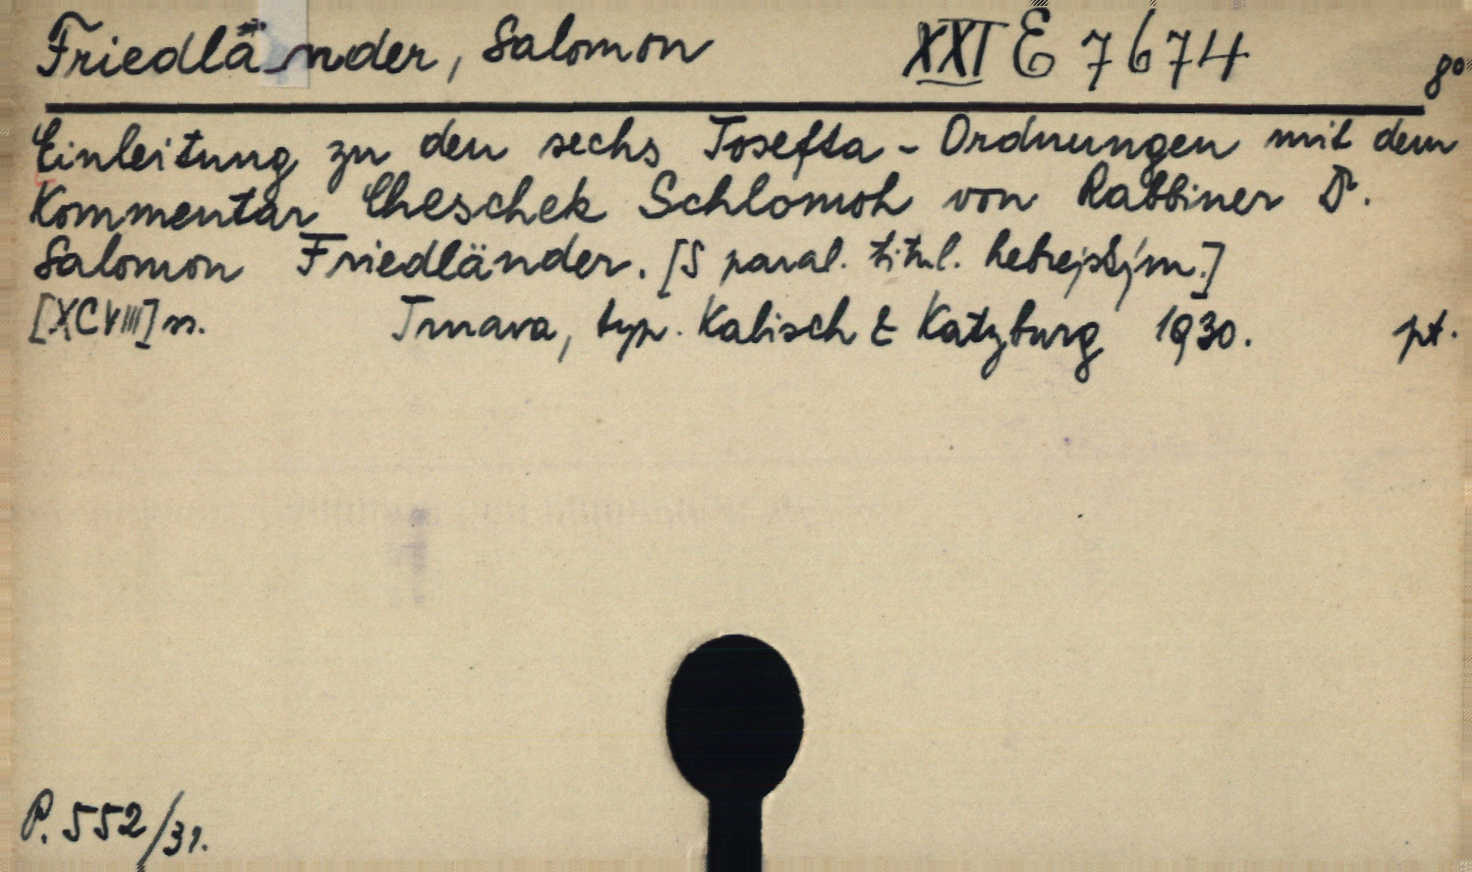 Friedländer, Salomon XXI E 7674 8°
Einleitung zu den sechs Tosefta - Ordnungen mit dem
Kommentar Cheschek Schlomoh von Rabbiner Dr.
Salomon Friedländer. [S paral. titul. hebrejským.]
[XCVIII] s. Trnava, typ. Kalisch & Katzburg 1930. pt.
P. 552/31.